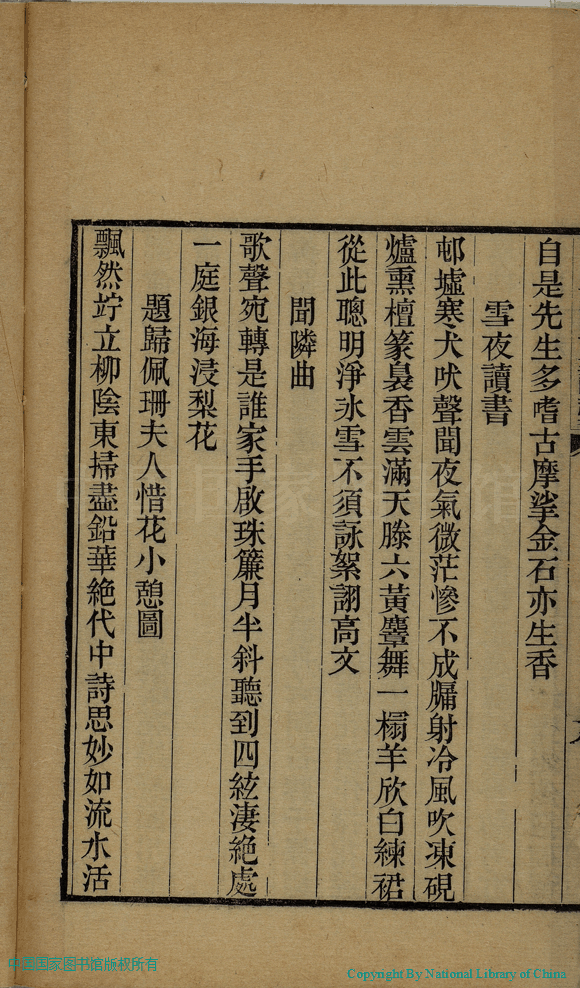 自是先生多嗜古摩挲金石亦生香
雪夜讀書
邨墟寒犬吠聲聞夜氣微茫慘不成牖射冷風吹凍硯
爐熏檀篆裊香雲滿天滕六黃麞舞一榻羊欣白練裙
從此聰明淨氷雪不須詠絮詡高文
聞隣曲
歌聲宛轉是誰家手啟珠簾月半斜聽到四絃淒絶處
一庭銀海浸梨花
題歸佩珊夫人惜花小憩圖
飄然竚立柳陰東掃盡鉛華絶代中詩思妙如流水活
中国国家图书馆版权所有
Copyright By National Library of China